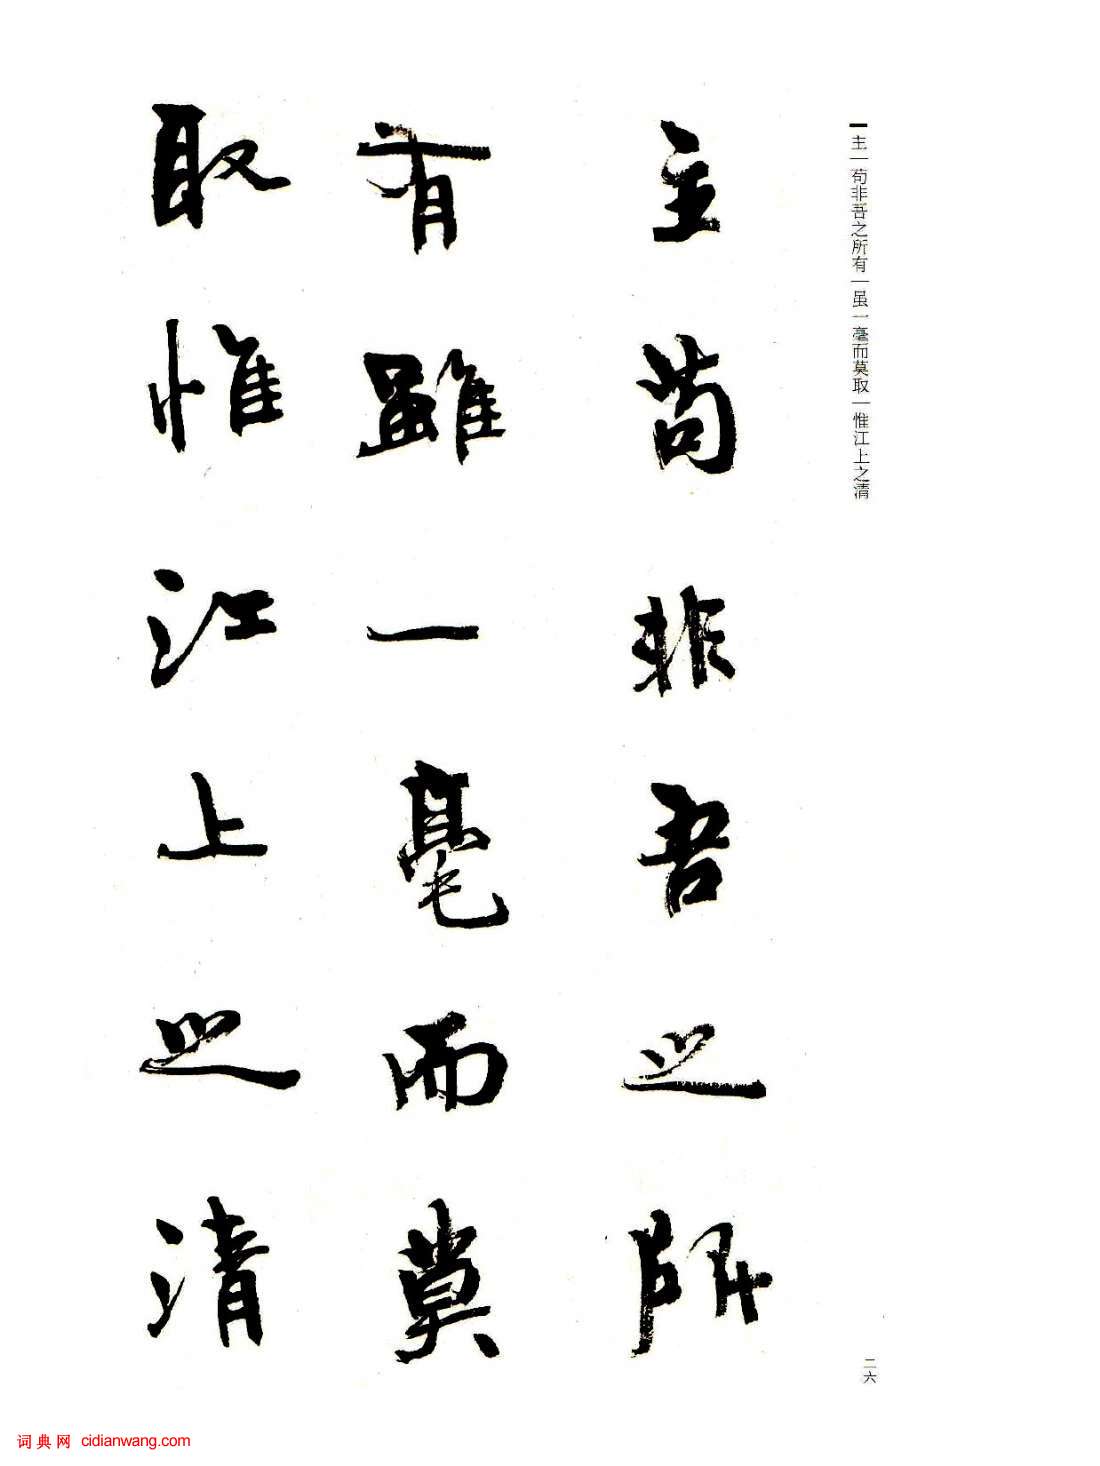 主｜苟非吾之所有｜虽一毫而莫取｜惟江上之清
主苟非吾之所
有雖一毫而莫
取惟江上之清
二六
词典网 cidianwang.com